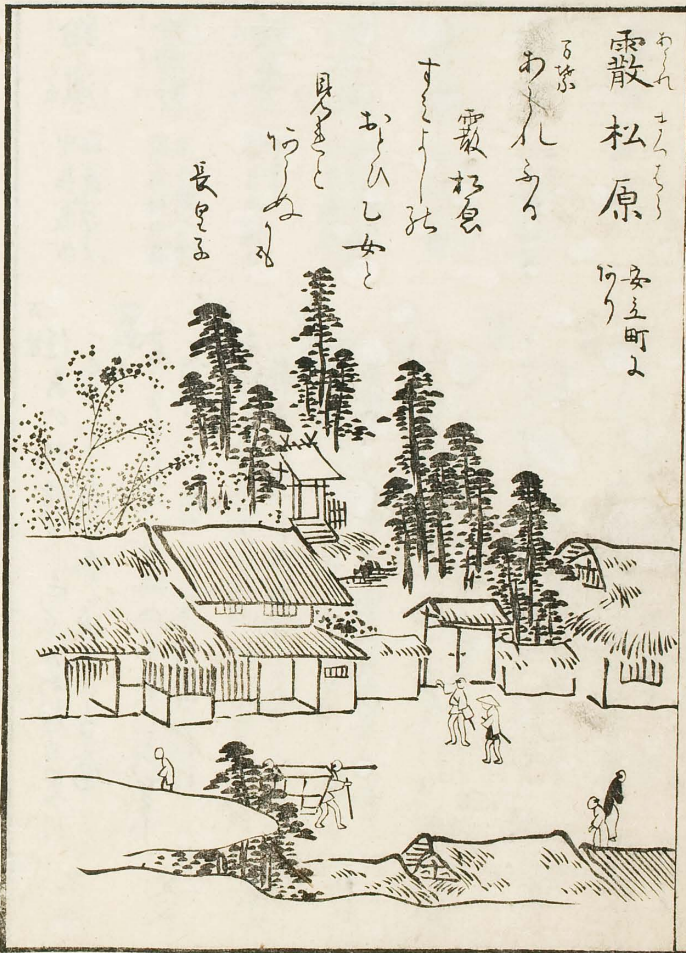 あられ まつはら
霰松原
安立町に
あり
万葉
あられふる
霰松原
すみよしの
おとひ乙女と
見れと
あかぬかも
長皇子